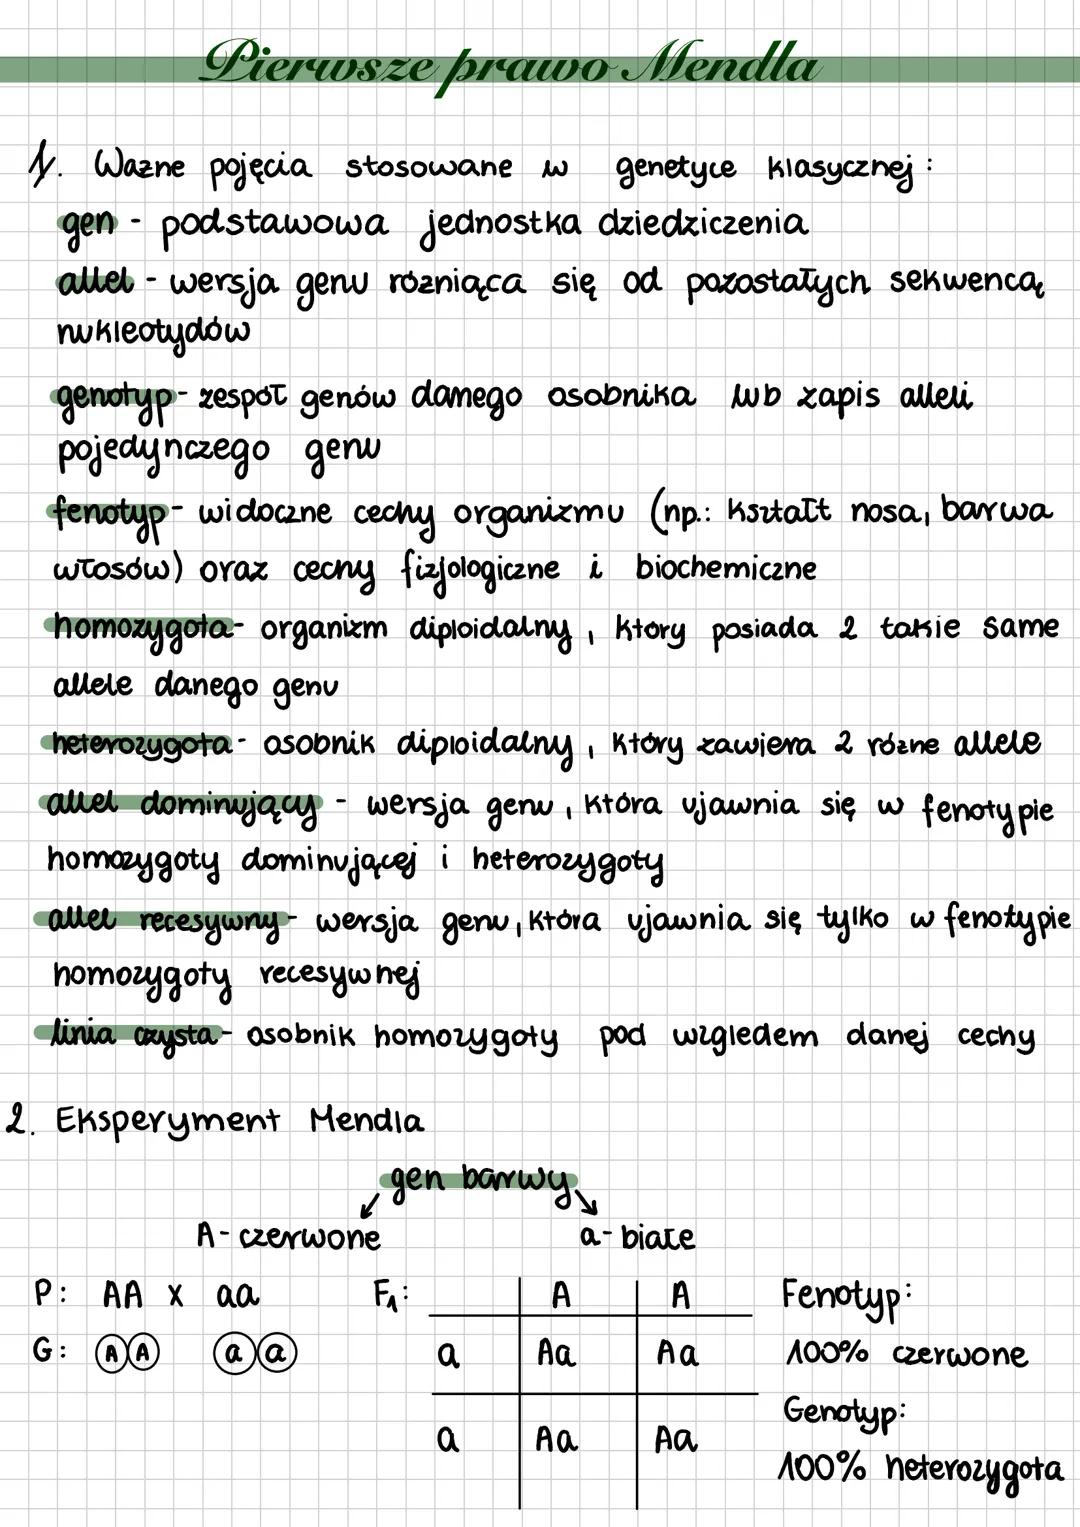 Pierwsze prawo Mendla
1. Ważne pojęcia stosowane w genetyce klasycznej:
gen - podstawowa jednostka dziedziczenia
allel - wersja genu różniąca się od pozostałych sekwencą
nukleotydów
genotyp - zespół genów danego osobnika lub zapis alleli
pojedynczego genu
fenotyp - widoczne cechy organizmu (np.: kształt nosa, barwa
włosów) oraz cechy fizjologiczne i biochemiczne
homozygota - organizm diploidalny, który posiada 2 takie same
allele danego genu
heterozygota - osobnik diploidalny, który zawiera 2 różne allele
allel dominujący - wersja genu, która ujawnia się w fenotypie
homozygoty dominującej i heterozygoty
allel recesywny - wersja genu, która ujawnia się tylko w fenotypie
homozygoty recesywnej
linia czysta - osobnik homozygoty pod względem danej cechy
2. Eksperyment Mendla
gen barwy
A - czerwone a - białe
P: AA x aa F1: A A Fenotyp:
G: A A a a a Aa Aa 100% czerwone
Genotyp:
a Aa Aa
100% heterozygota